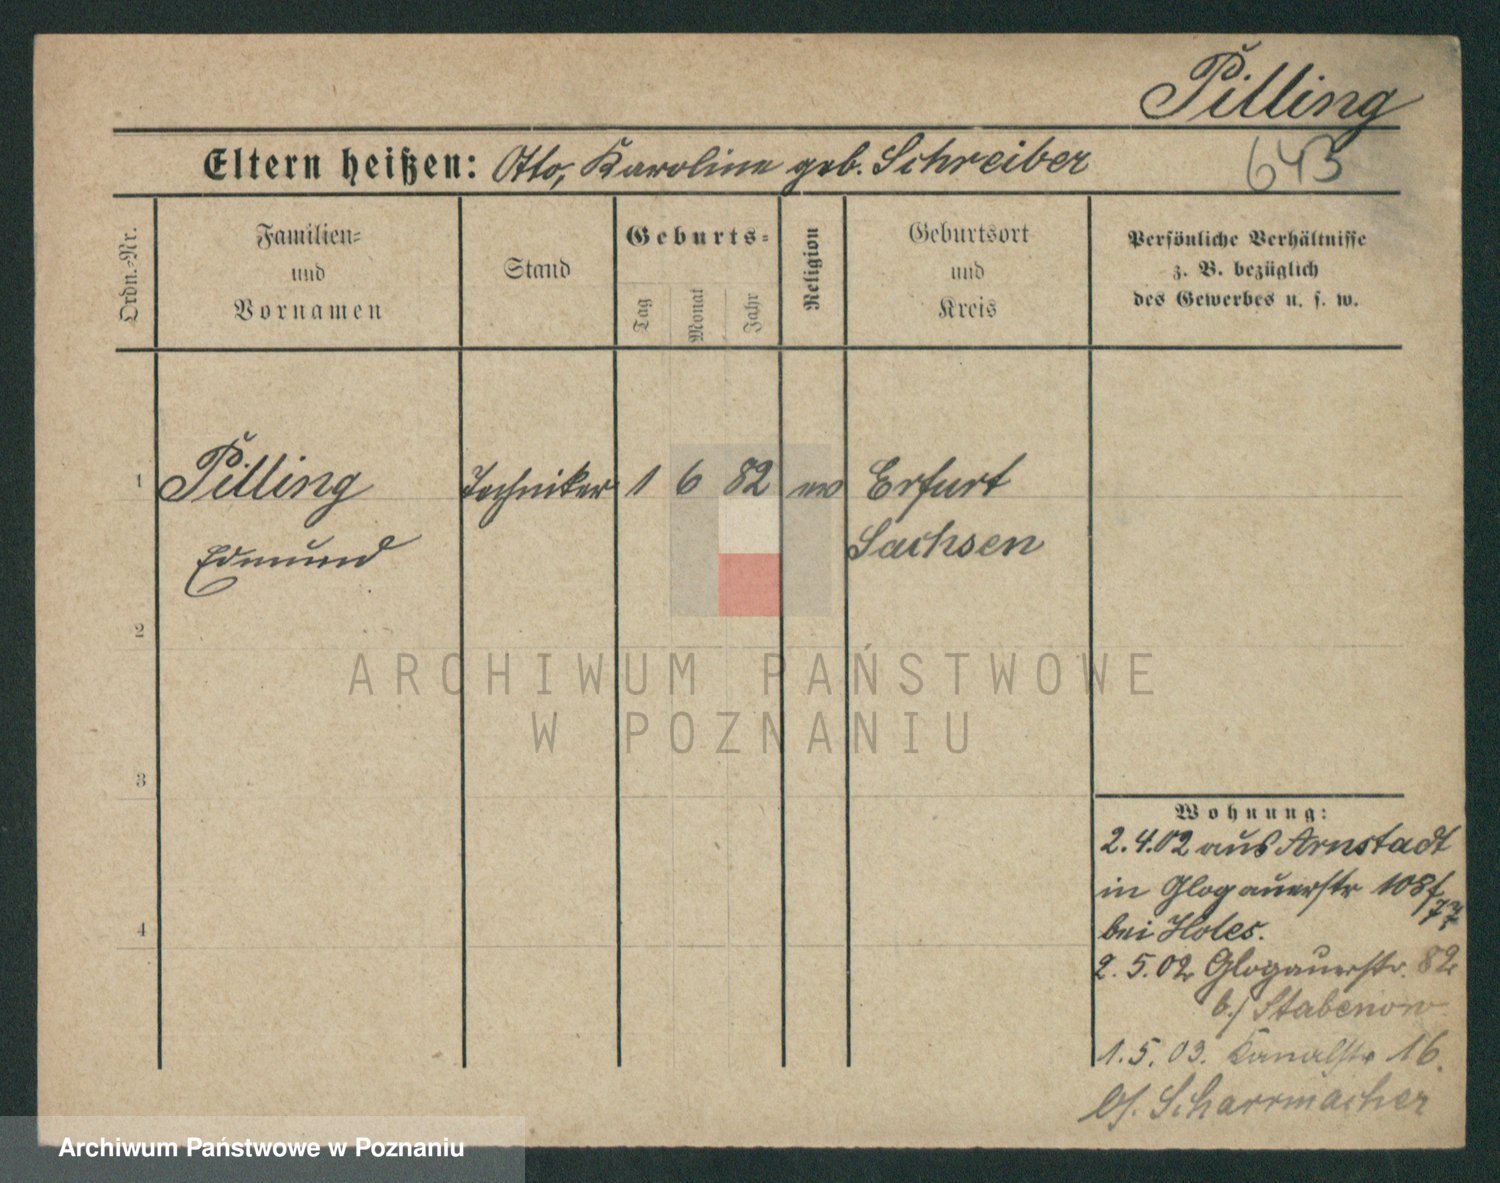 Pilling
Eltern heißen: Otto, Karoline geb. Schreiber
643
Ordn.-Nr.
Familien-
und
Vornamen
Stand
Geburts-
Tag
Monat
Jahr
Religion
Geburtsort
und
Kreis
Persönliche Verhältnisse
z. B. bezüglich
des Gewerbes u. s. w.
1 Pilling Techniker 1 6 82 ev Erfurt
Edmund Sachsen
2
ARCHIWUM PAŃSTWOWE
W POZNANIU
3
Wohnung:
2.4.02 aus Arnstadt
in Glogauerstr 108f
4
bei
2.5.02 Glogauerstr. 82
b./ Stabenow
1.5.03. Kanalstr 16.
b/. Scharrmacher
Archiwum Państwowe w Poznaniu